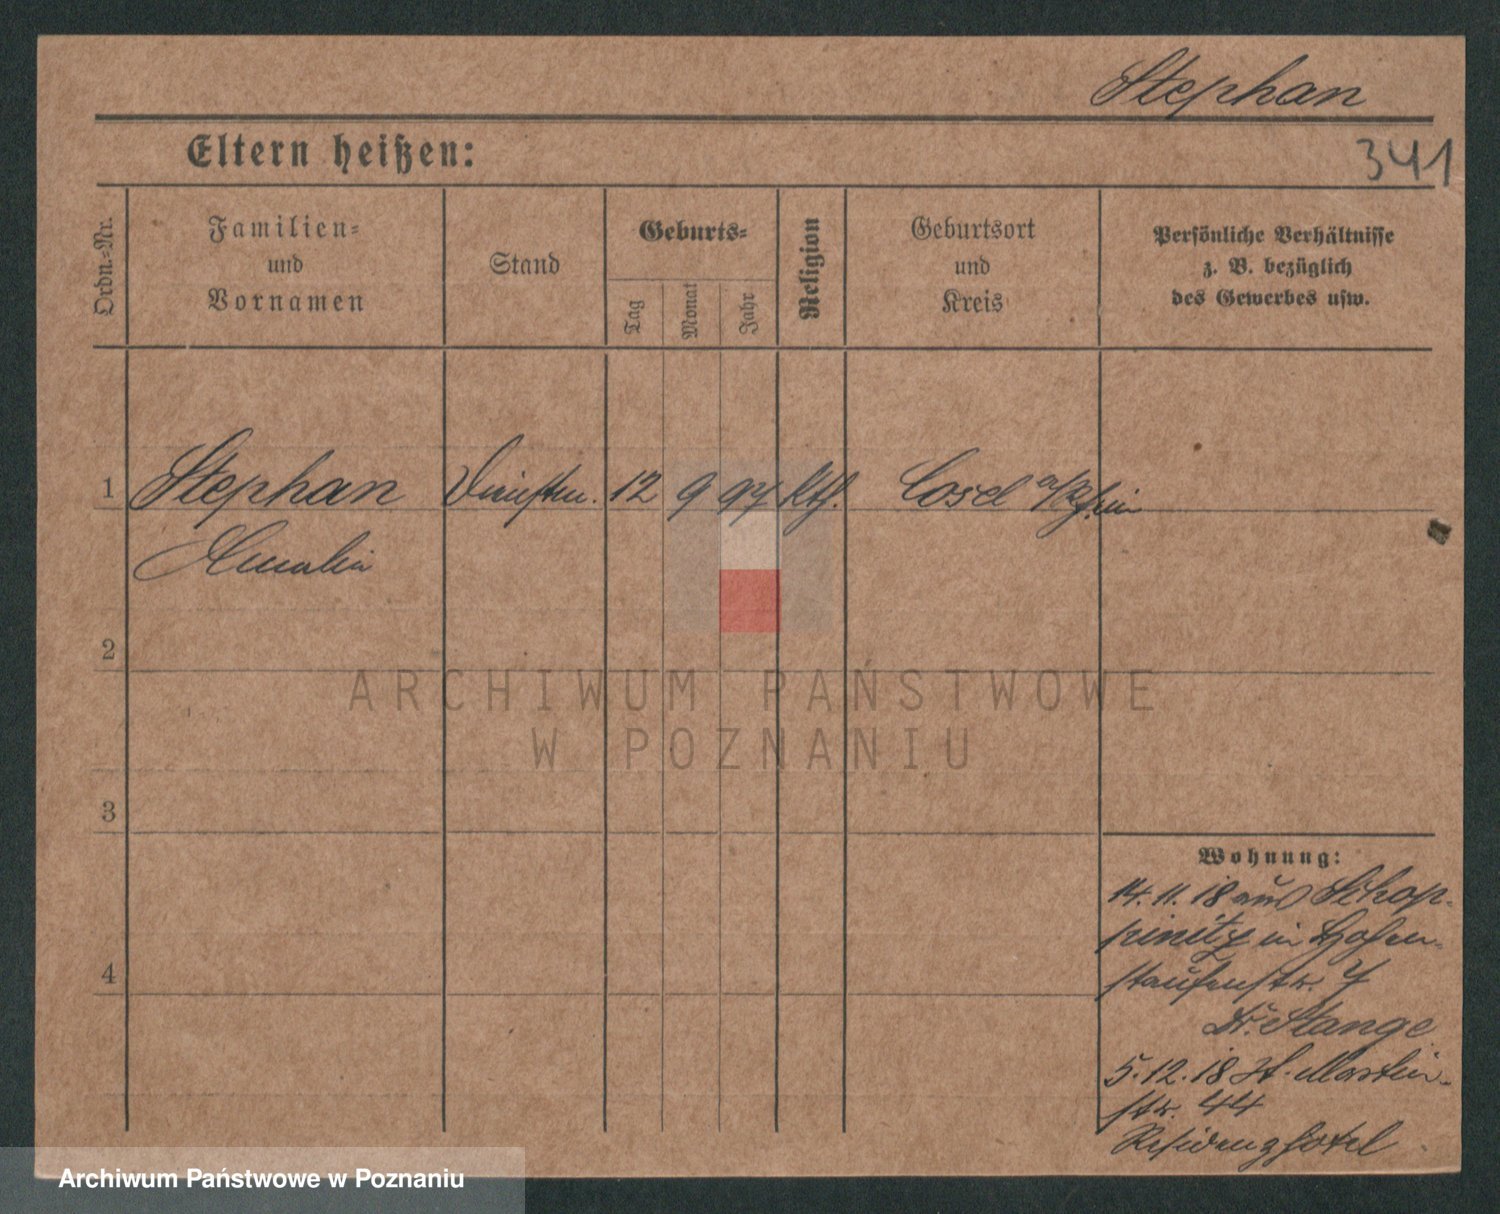 Stephan
Eltern heißen:
341
Ordn.-Nr.
Familien-
und
Vornamen
Stand
Geburts-
Tag
Monat
Jahr
Religion
Geburtsort
und
Kreis
Persönliche Verhältnisse
z. B. bezüglich
des Gewerbes usw.
1
Stephan
Dienstm.
12
9
97
Kth.
Cosel a/Rhein
Amalie
2
3
4
ARCHIWUM PAŃSTWOWE
W POZNANIU
Wohnung:
14.11.18 aus Schop-
pinitz in Hohen-
staufenstr. 7
Dr. Stange
5.12.18 St. Martin-
str. 44
Residenzhotel
Archiwum Państwowe w Poznaniu